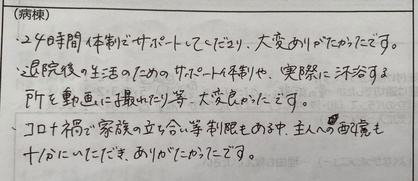 (病棟)
・24時間体制でサポートしてくださり、大変ありがたかったです。
・退院後の生活のためのサポート体制や、実際に沐浴する
所を動画に撮れたり等、大変良かったです。
・コロナ禍で家族の立ち合い等制限もある中、主人への配慮も
十分にいただき、ありがたかったです。